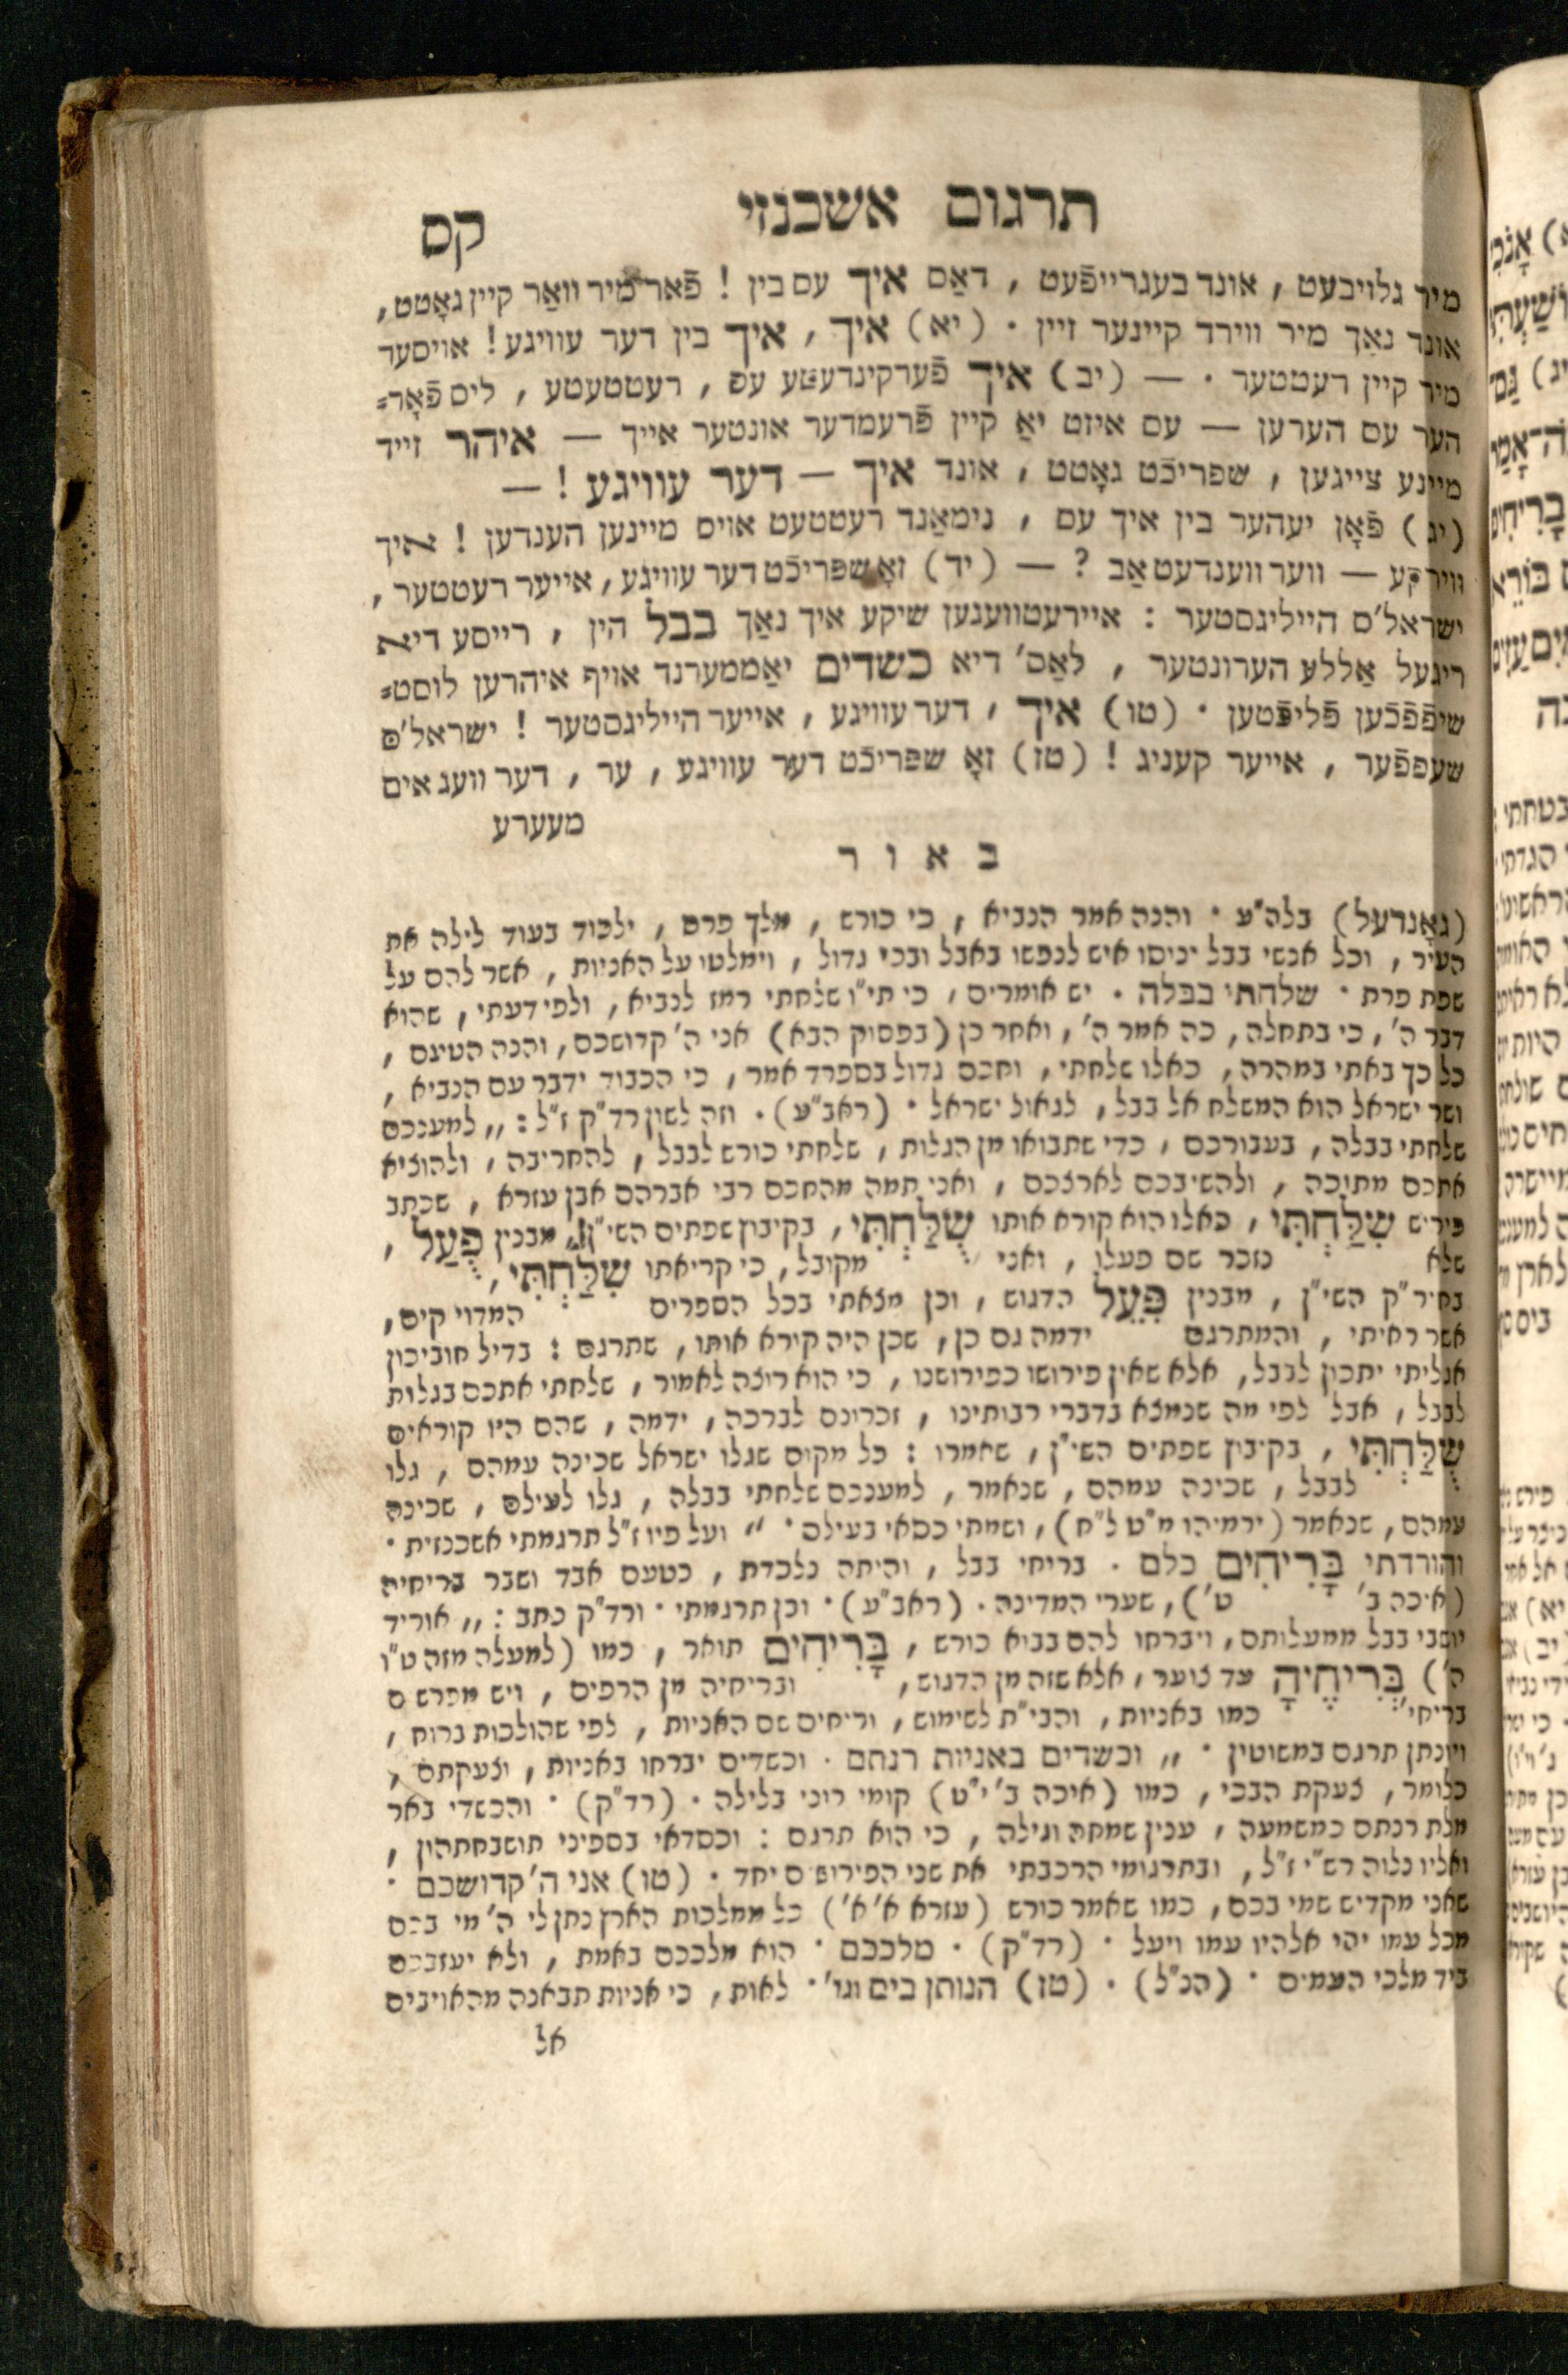 תרגום אשכנזי
קס
מיר גלויבעט, אונד בעגרייפֿעט, דאַס איך עס בין! פֿאר מיר וואַר קיין גאָטט,
אונד נאַך מיר ווירד קיינער זיין. (יא) איך, איך בין דער עוויגע! אויסער
מיר קיין רעטטער. — (יב) איך פֿערקינדעטע עס, רעטטעטע, ליס פֿאָר⸗
הער עס הערען — עס איזט יאַ קיין פֿרעמדער אונטער אייך — איהר זייד
מיינע צייגען, שפריכֿט גאָטט, אונד איך — דער עוויגע! —
(יג) פֿאָן יעהער בין איך עס, נימאַנד רעטטעט אויס מיינען הענדען! איך
ווירקע — ווער ווענדעט אַב? — (יד) זאָ שפריכֿט דער עוויגע, אייער רעטטער,
ישראל'ס הייליגסטער: איירעטוועגען שיקע איך נאַך בבל הין, רייסע דיא
ריגעל אַללע הערונטער, לאַס' דיא כשדים יאַממערנד אויף איהרען לוסט⸗
שיפֿפֿכֿען פֿליכֿטען. (טו) איך, דער עוויגע, אייער הייליגסטער! ישראל'ס
שעפפֿער, אייער קעניג! (טז) זאָ שפריכֿט דער עוויגע, ער, דער וועג אים
מעערע
באור
(גאָנדעל) בלה"ע. והנה אמר הנביא, כי כורש, מלך פרס, ילכוד בעוד לילה את
העיר, וכל אנשי בבל ינוסו איש לנפשו באבל ובכי גדול, וימלטו על האניות, אשר להם על
שפת פרת. שלחתי בבלה. יש אומרים, כי תי"ו שלחתי רמז לנביא, ולפי דעתי, שהוא
דבר ה', כי בתחלה, כה אמר ה', ואחר כן (בפסוק הבא) אני ה' קדושכם, והנה הטעם,
כל כך באתי במהרה, כאלו שלחתי, וחכם גדול בספרד אמר, כי הכבוד ידבר עם הנביא,
ושר ישראל הוא המשלח אל בבל, לגאול ישראל. (ראב"ע). וזה לשון רד"ק ז"ל: „למענכם
שלחתי בבלה, בעבורכם, כדי שתבואו מן הגלות, שלחתי כורש לבבל, להחריבה, ולהוציא
אתכם מתוכה, ולהשיבכם לארצכם, ואני תמה מהחכם רבי אברהם אבן עזרא, שכתב
פירוש שִׁלַּחְתִּי, כאלו הוא קורא אותו שֻׁלַּחְתִּי, בקיבוץ שפתים השי"ן, מבנין פֻּעַל,
שלא נזכר שם פעלו, ואני מקובל, כי קריאתו שִׁלַּחְתִּי,
בחיר"ק השי"ן, מבנין פִּעֵל הדגוש, וכן מצאתי בכל הספרים המדוייקים,
אשר ראיתי, והמתרגם ידמה גם כן, שכן היה קורא אותו, שתרגם: בדיל חוביכון
אגליתי יתכון לבבל, אלא שאין פירושו כפירושנו, כי הוא רוצה לאמור, שלחתי אתכם בגלות
לבבל, אבל לפי מה שנמצא בדברי רבותינו, זכרונם לברכה, ידמה, שהם היו קוראים
שֻׁלַּחְתִּי, בקיבוץ שפתים השי"ן, שאמרו: כל מקום שגלו ישראל שכינה עמהם, גלו
לבבל, שכינה עמהם, שנאמר, למענכם שלחתי בבלה, גלו לעילם, שכינה
עמהם, שנאמר (ירמיהו מ"ט ל"ח), ושמתי כסאי בעילם." ועל פיו ז"ל תרגמתי אשכנזית.
והורדתי בָּרִיחִים כלם. בריחי בבל, והיתה נלכדת, כטעם אבד ושבר בריחיה
(איכה ב' ט'), שערי המדינה. (ראב"ע). וכן תרגמתי. ורד"ק כתב: „אוריד
יושבי בבל ממעלותם, ויברחו להם בבוא כורש, בָּרִיחִים תואר, כמו (למעלה מזה ט"ו
ה') בְּרִיחֶיהָ עד צוער, אלא שזה מן הדגוש, ובריחיה מן הרפים, ויש מפרשים
בריחי' כמו באניות, והבי"ת לשימוש, וריחים שם האניות, לפי שהולכות ברוח,
ויונתן תרגם במשוטין. „ וכשדים באניות רנתם. וכשדים יברחו באניות, וצעקתם,
כלומר, צעקת הבכי, כמו (איכה ב' י"ט) קומי רוני בלילה. (רד"ק). והכשדי באר
מלת רנתם כמשמעה, ענין שמחה וגילה, כי הוא תרגם: וכסדאי בספיני תושבחתהון,
ואליו נלוה רש"י ז"ל, ובתרגומי הרכבתי את שני הפירושים יחד. (טו) אני ה' קדושכם.
שאני מקדיש שמי בכם, כמו שאמר כורש (עזרא א' א') כל ממלכות הארץ נתן לי ה' מי בכם
מכל עמו יהי אלהיו עמו ויעל. (רד"ק). מלככם. הוא מלככם באמת, ולא יעזבכם
ביד מלכי העמים. (הנ"ל). (טז) הנותן בים וגו'. לאות, כי אניות תבאנה מהאויבים
אל